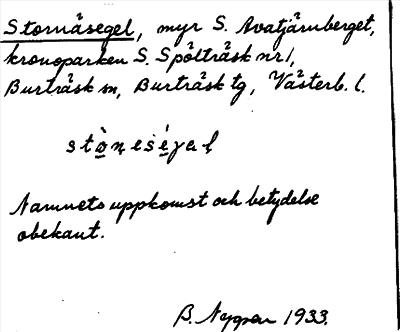 Stornäsegel, myr S. Avatjärnberget,
kronoparken S. Spölträsk nr 1,
Burträsk sn, Burträsk tg, Västerb. l.
Namnets uppkomst och betydelse
obekant.
B. Nygren 1933.